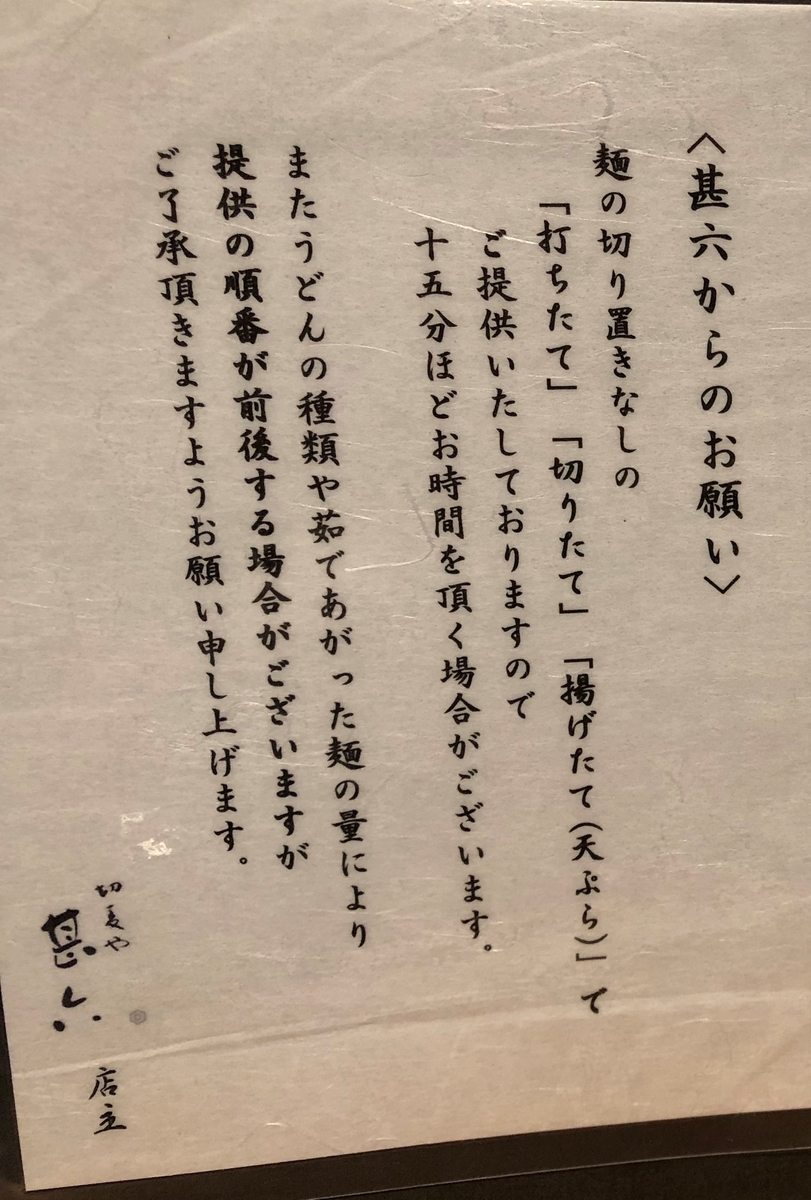 〈甚六からのお願い〉
麺の切り置きなしの
「打ちたて」「切りたて」「揚げたて(天ぷら)」で
ご提供いたしておりますので
十五分ほどお時間を頂く場合がございます。
またうどんの種類や茹であがった麺の量により
提供の順番が前後する場合がございますが
ご了承頂きますようお願い申し上げます。
切麦や
甚六
店主